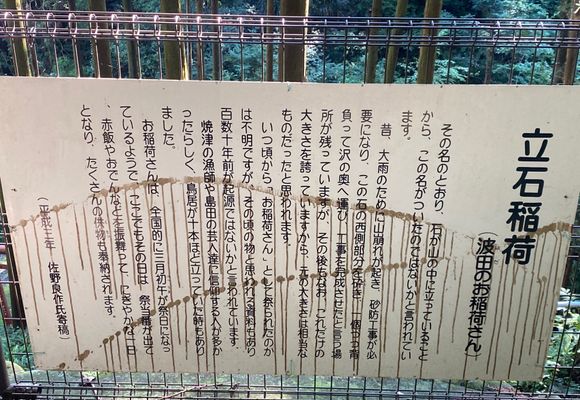 立石稲荷
（波田のお稲荷さん）
その名のとおり、石が山の中に立っていること
から、この名がついたのではないかと言われてい
ます。
昔、大雨のために山崩れが起き、砂防工事が必
要になり、この石の西側部分を砕き、一個ずつ背
負って沢の奥へ運び、工事を完成させたと言う場
所が残っていますが、その後もなお、これだけの
大きさを誇っていますから、元の大きさは相当な
ものだったと思われます。
いつ頃から「お稲荷さん」として祭られたのか
は不明ですが、その頃の物と思われる資料もあり
百数十年前が起源ではないかと言われています。
焼津の漁師や島田の芸人達に信仰する人が多か
ったらしく、鳥居が一本ほど立っていた時もあり
ました。
お稲荷さんは、全国的に三月初午が祭日になっ
ているようで、ここでもその日は、祭当番が出て
赤飯やおでんなどを振舞って、にぎやかな一日
となり、たくさんの供物も奉納されます。
（平成十二年　佐野良作氏寄稿）